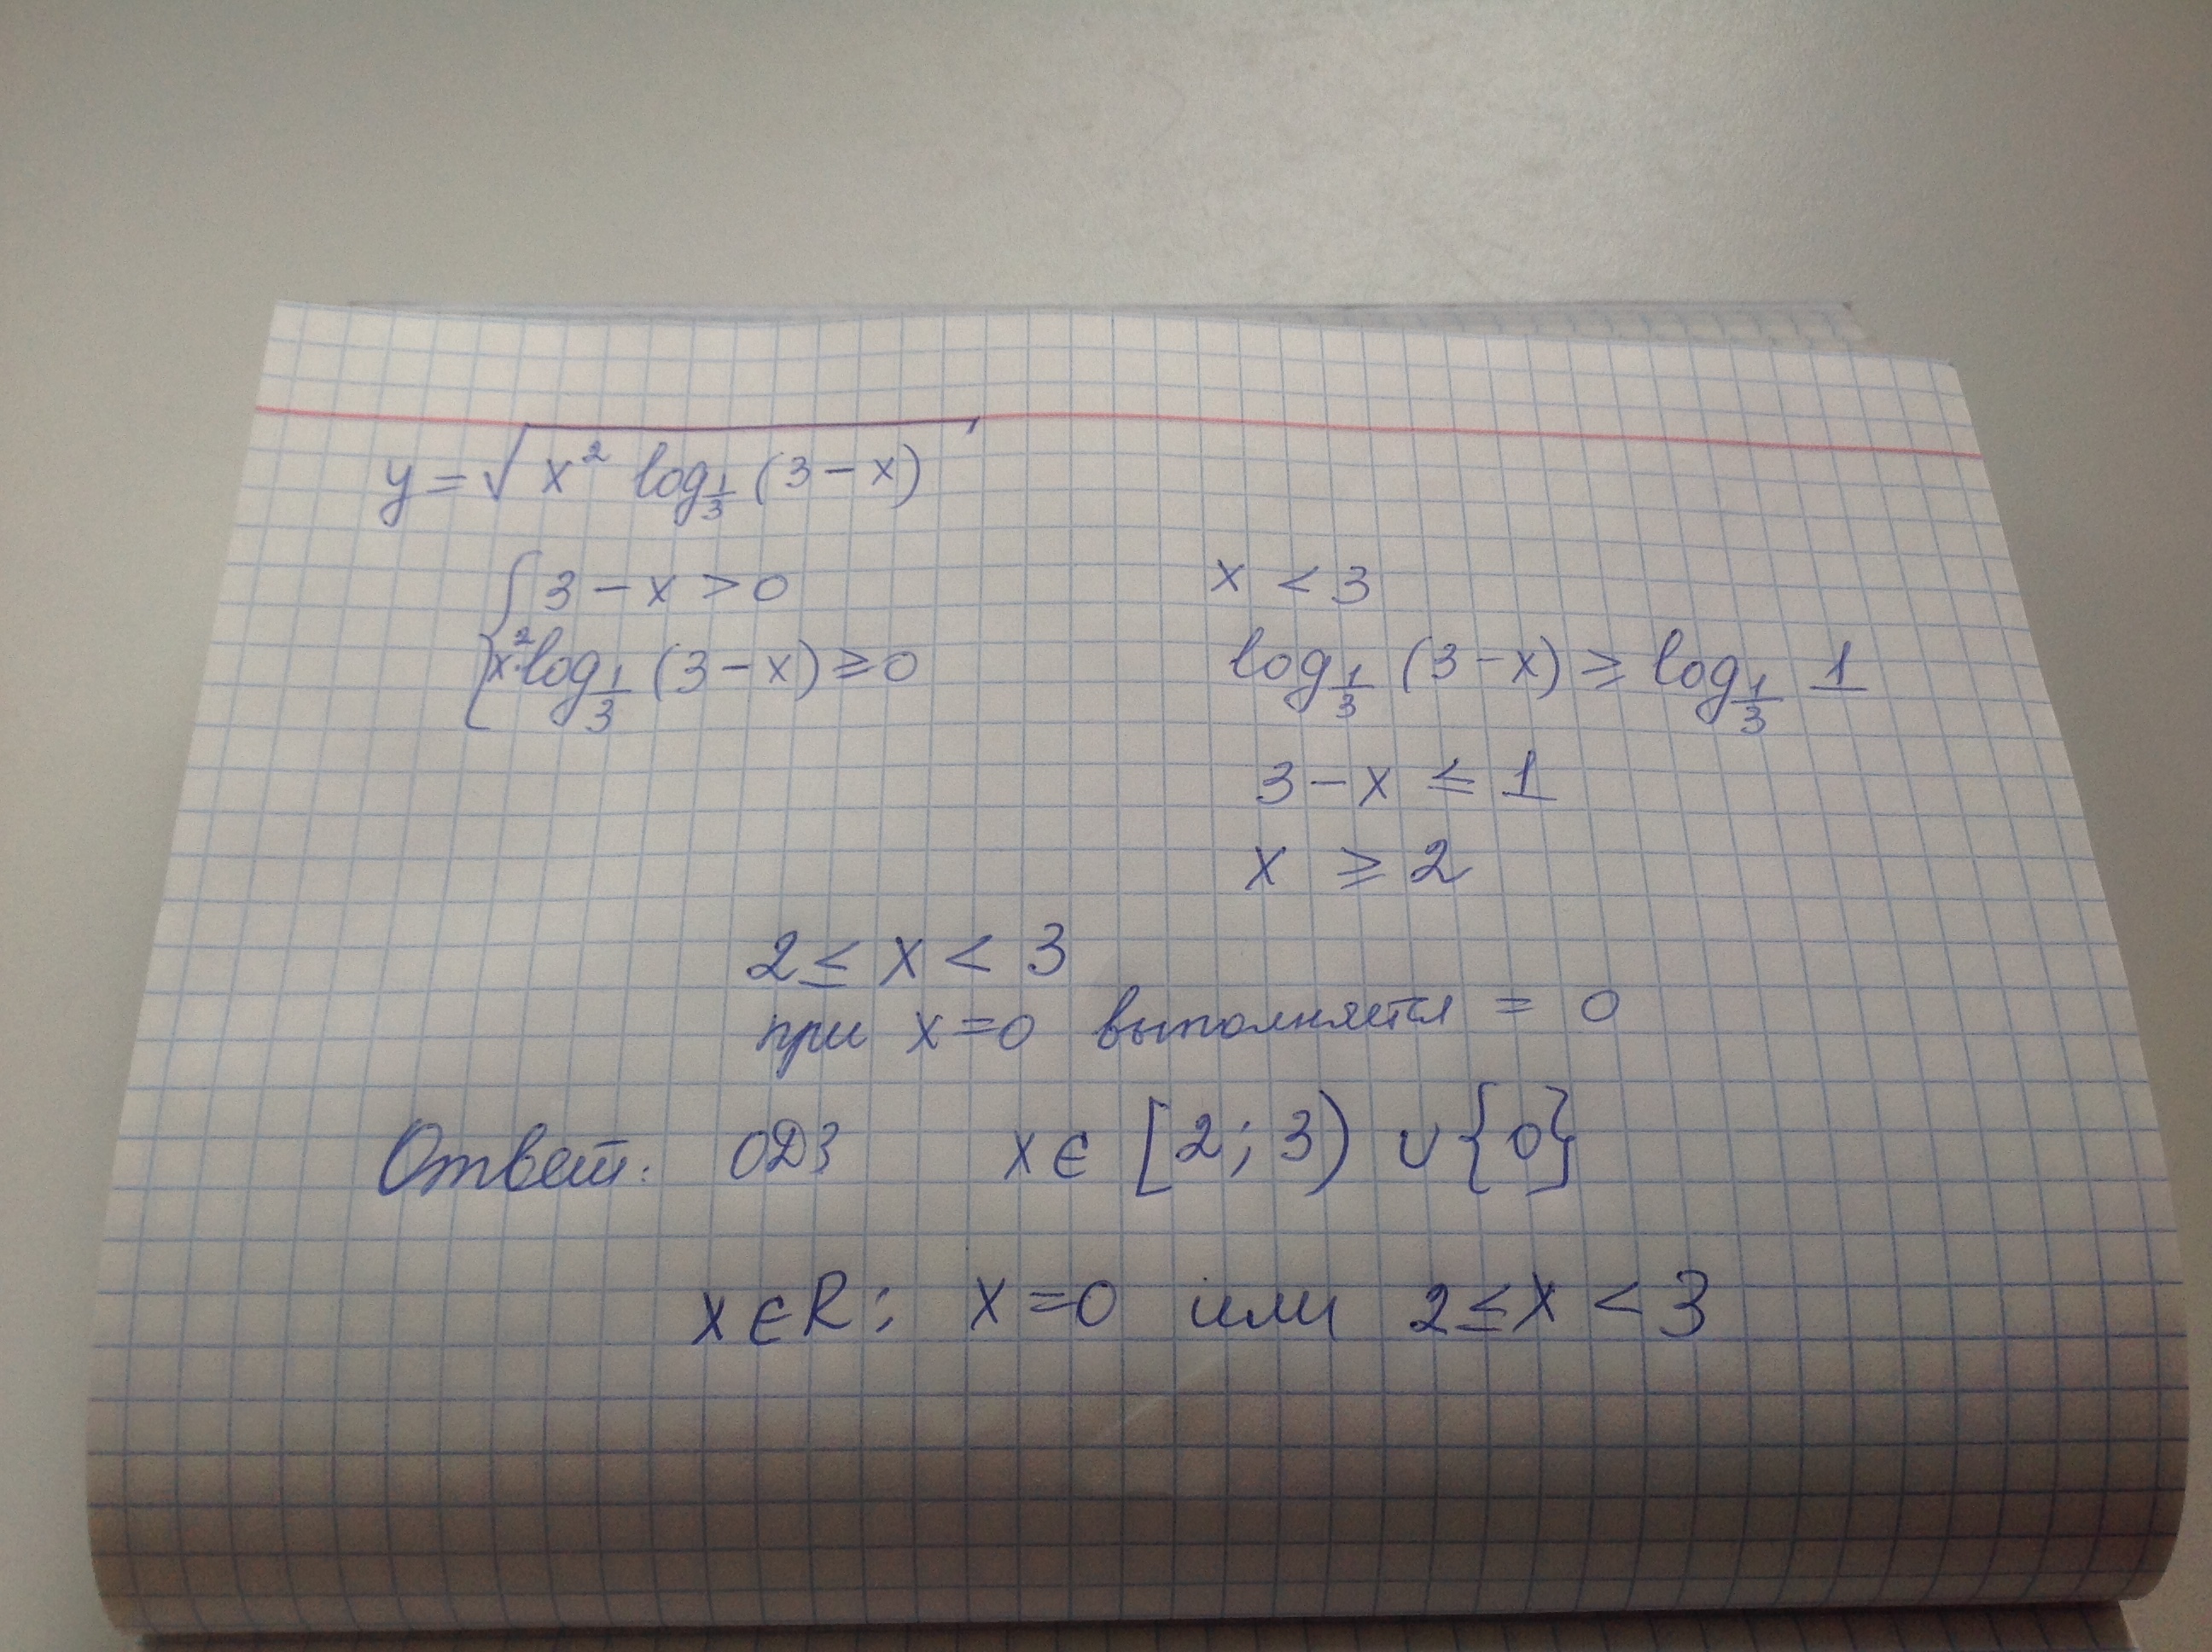 y = √(x² log_{1/3} (3 – x))
{ 3 – x > 0
x < 3
x² · log_{1/3} (3 – x) ≥ 0
log_{1/3} (3 – x) ≥ log_{1/3} 1
3 – x ≤ 1
x ≥ 2
2 ≤ x < 3
при x = 0 выполняется = 0
Ответ: ОДЗ x ∈ [2; 3) ∪ {0}
x ∈ R: x = 0 или 2 ≤ x < 3